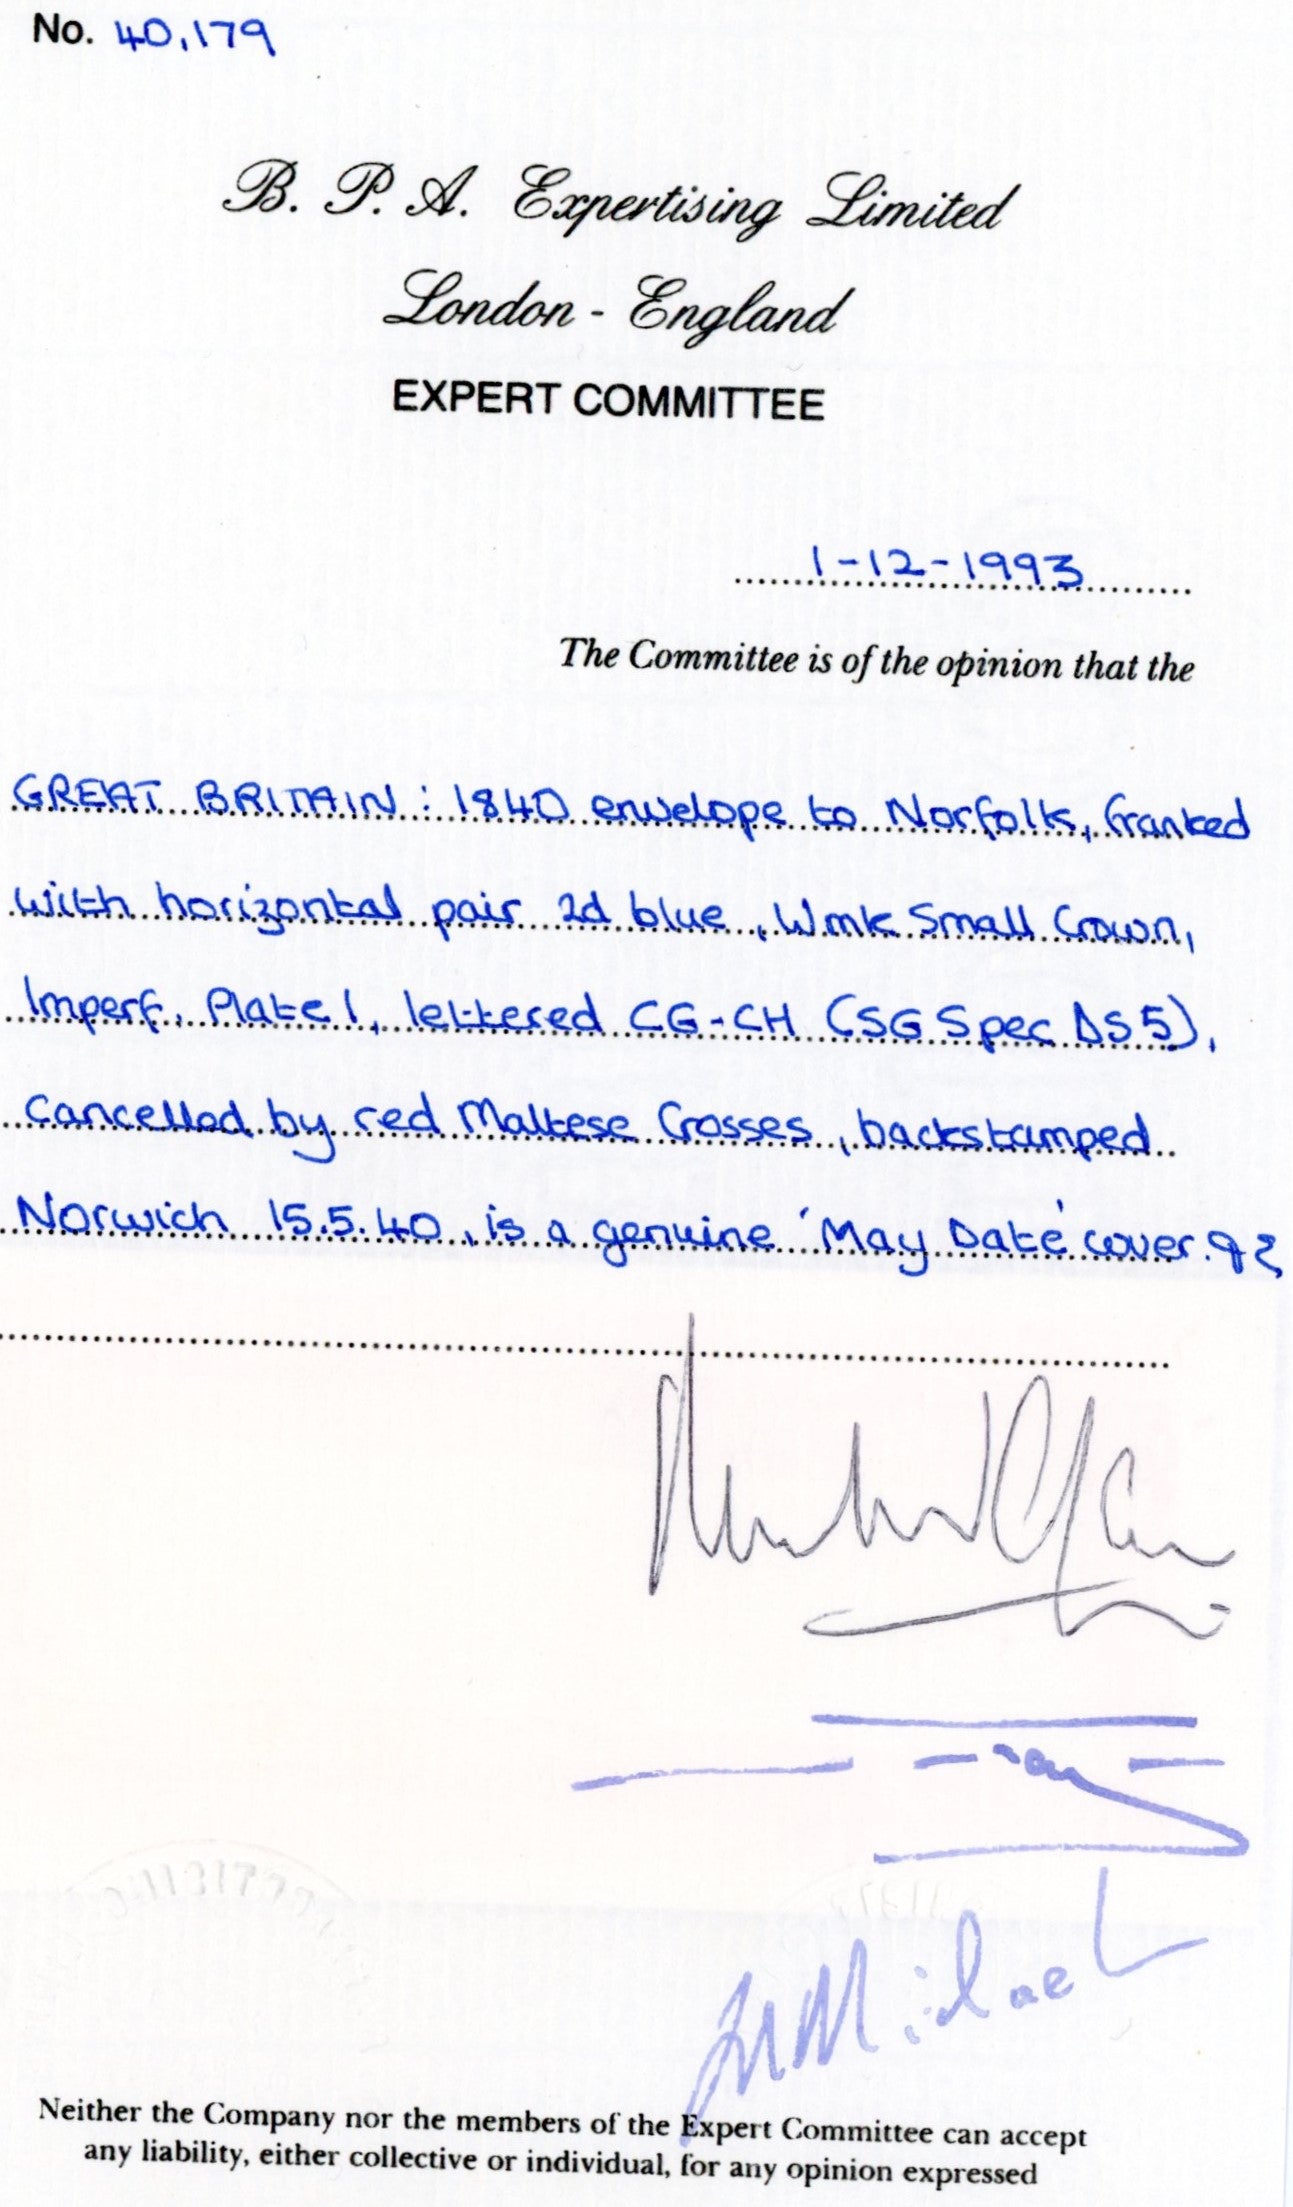 No. 40,179
B. P. A. Expertising Limited
London - England
EXPERT COMMITTEE
1-12-1993
The Committee is of the opinion that the
GREAT BRITAIN : 1840 envelope to Norfolk, franked
with horizontal pair 2d blue, Wmk Small Crown,
Imperf, Plate 1, lettered CG-CH (SG Spec DS5),
cancelled by red Maltese Crosses, backstamped
Norwich 15.5.40, is a genuine 'May Date' cover.
Neither the Company nor the members of the Expert Committee can accept
any liability, either collective or individual, for any opinion expressed